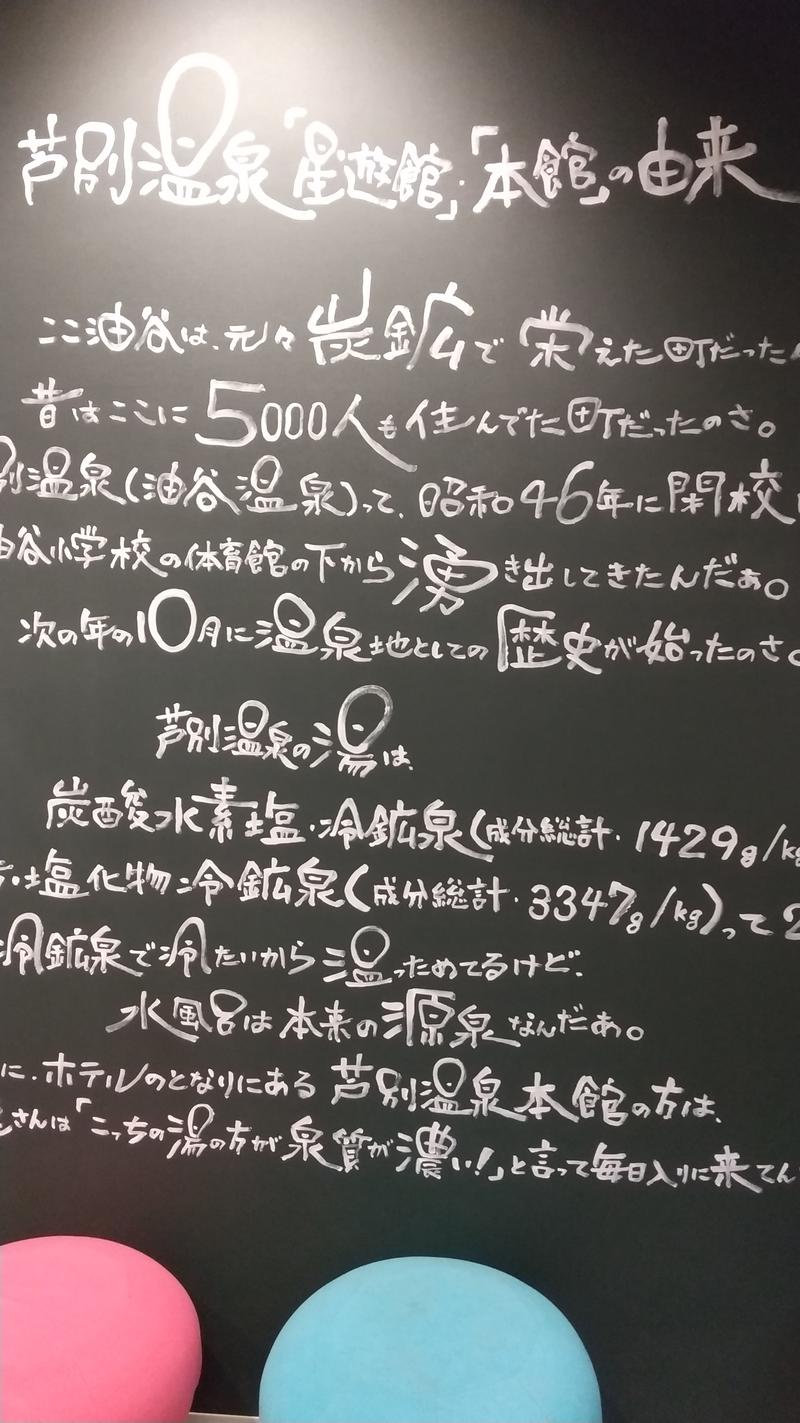 芦別温泉「星遊館」・「本館」の由来
ここ油谷は、元々炭鉱で栄えた町だった
昔はここに5000人も住んでた町だったのさ。
別温泉(油谷温泉)って、昭和46年に閉校
油谷小学校の体育館の下から湧き出してきたんだぁ。
次の年の10月に温泉地としての歴史が始ったのさ。
芦別温泉の湯は、
炭酸水素塩・冷鉱泉(成分総計・1429g/kg
・塩化物冷鉱泉(成分総計・3347g/kg)って2
冷鉱泉で冷たいから温っためてるけど、
水風呂は本来の源泉なんだぁ。
に、ホテルのとなりにある芦別温泉本館の方は、
さんは「こっちの湯の方が泉質が濃い!」と言って毎日入りに来てん